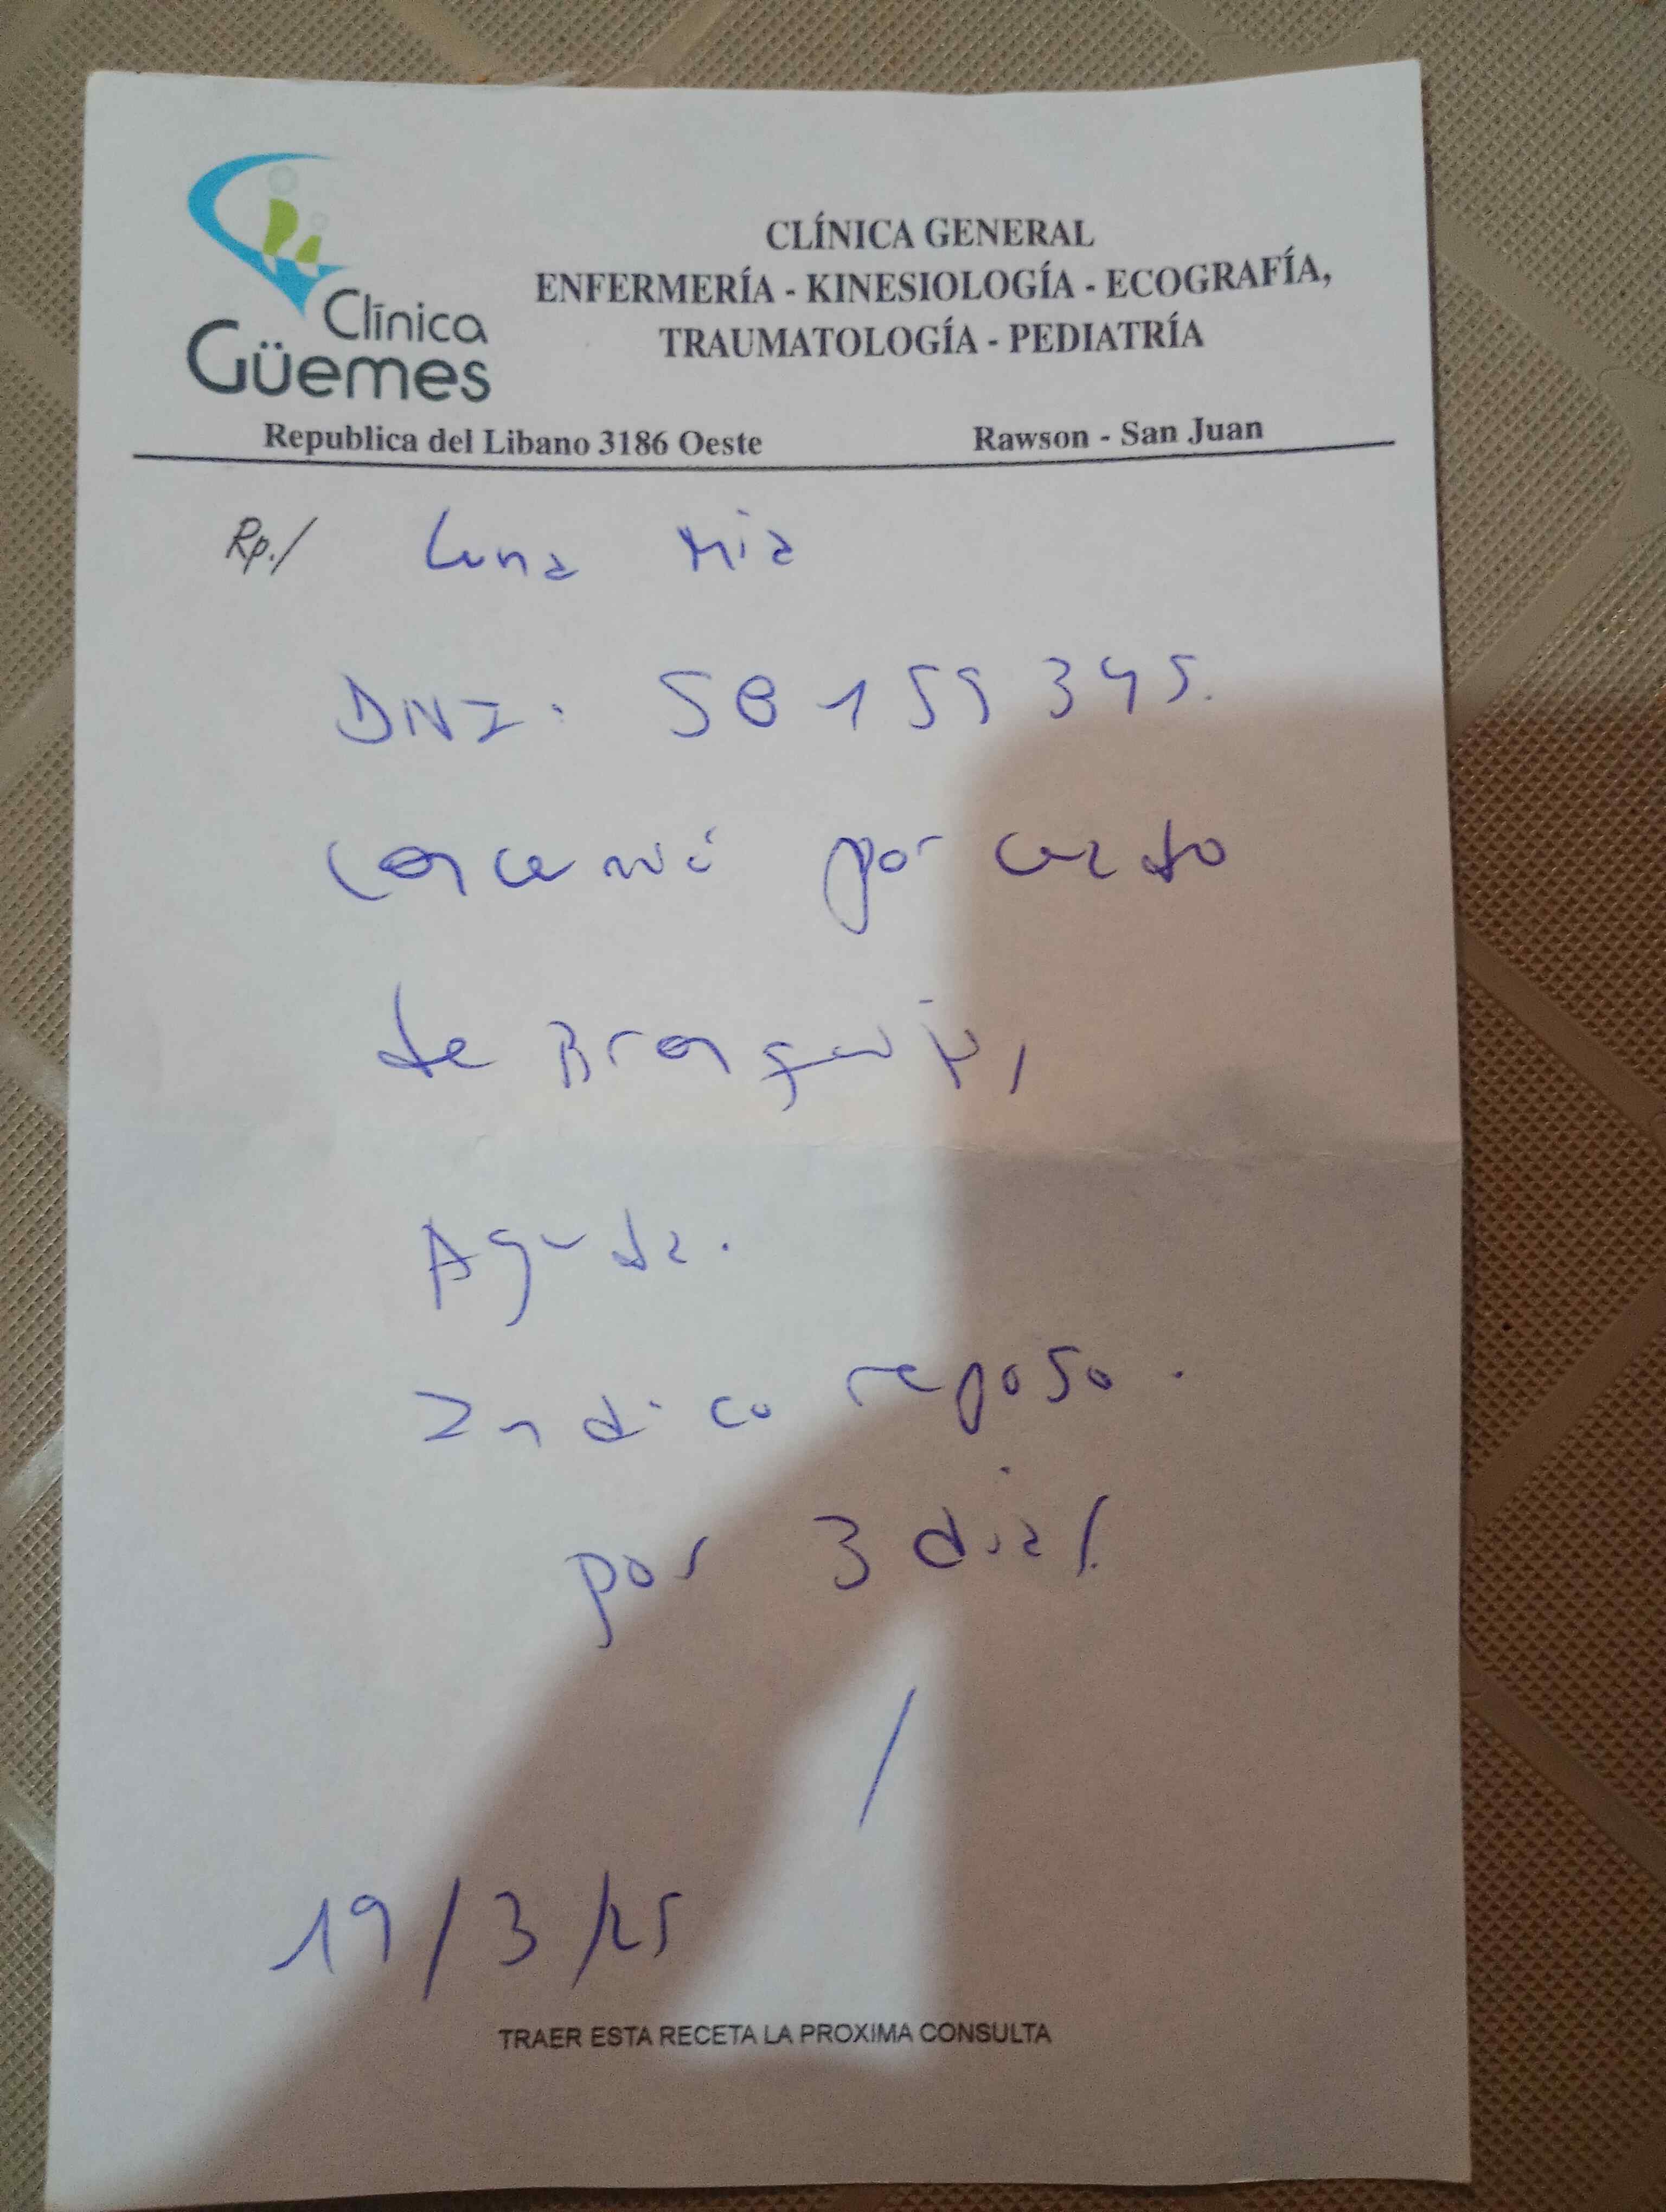 Clínica
Güemes
CLÍNICA GENERAL
ENFERMERÍA - KINESIOLOGÍA - ECOGRAFÍA,
TRAUMATOLOGÍA - PEDIATRÍA
Republica del Libano 3186 Oeste Rawson - San Juan
Rp./ Luna Mia
DNI: 58 159 345.
por
de
Aguda.
Indico reposo.
por 3 dias.
/
19/3/25
TRAER ESTA RECETA LA PROXIMA CONSULTA